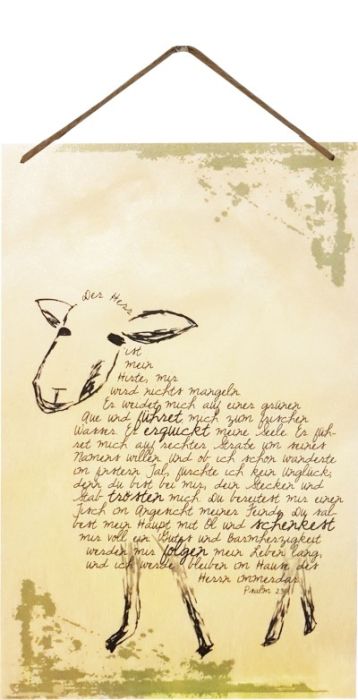 Der Herr
ist
mein
Hirte, mir
wird nichts mangeln.
Er weidet mich auf einer grünen
Aue und führet mich zum frischen
Wasser. Er erquickt meine Seele. Er füh-
ret mich auf rechter Straße um seines
Namens willen und ob ich schon wanderte
im finstern Tal, fürchte ich kein Unglück;
denn du bist bei mir, dein Stecken und
Stab trösten mich. Du bereitest mir einen
Tisch im Angesicht meiner Feinde. Du sal-
best mein Haupt mit Öl und schenkest
mir voll ein. Gutes und Barmherzigkeit
werden mir folgen mein Leben lang,
und ich werde bleiben im Hause des
Herrn immerdar.
Psalm 23